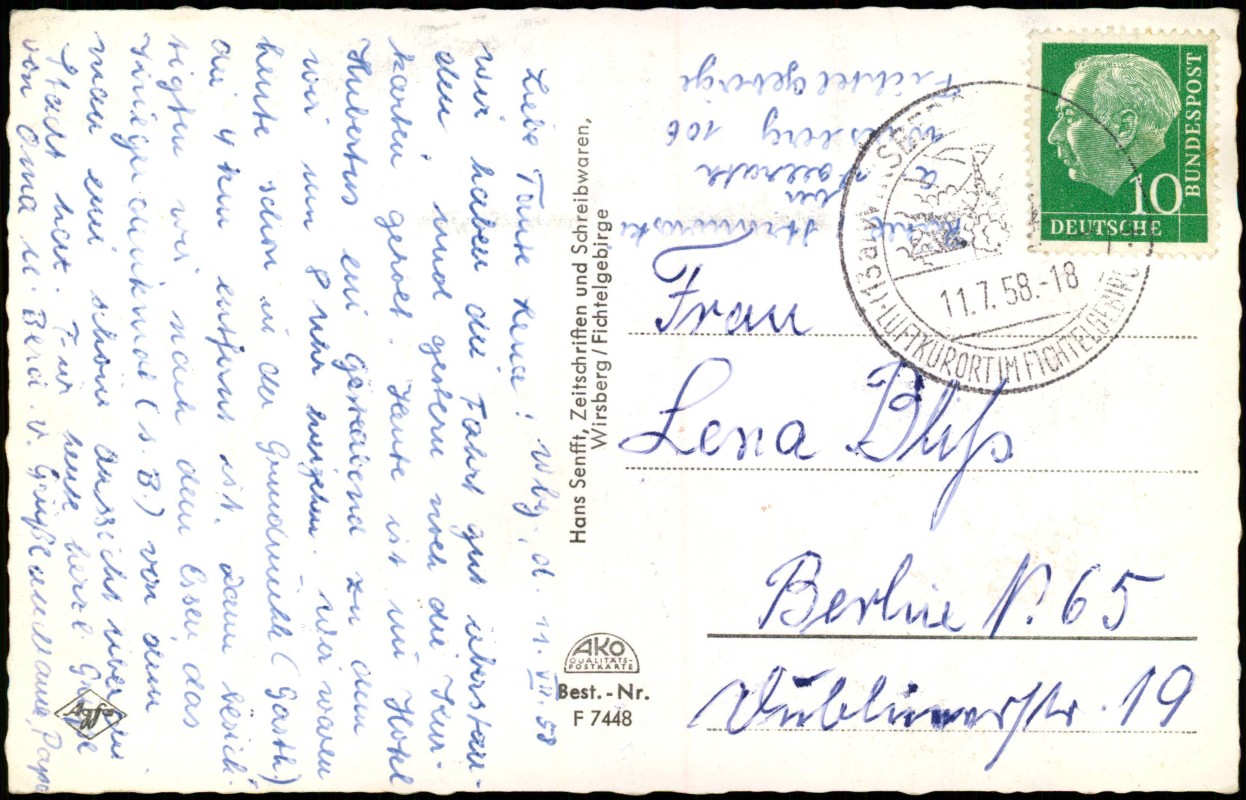 Liebe Tante Lena! Wbg, d. 11. VII. 58
wir haben die Fahrt gut überstan-
den und gestern noch die Kur-
karten geholt. Heute ist im Hotel
Hubertus ein gastabend zu dem
wir um 8 Uhr hingehen. Wir waren
heute schon in der Grundmühle (Gasth)
die 4 km entfernt ist. Dann besich-
tigten wir nach dem Essen das
denkmal (s. B.) von dem
man eine schöne aussicht über die
Stadt hat. Für heute herzl. Grüße
von Oma u. Bera v. Grüße a. u. Mama, Papa
Hans Senfft, Zeitschriften und Schreibwaren,
Wirsberg / Fichtelgebirge
AKO
QUALITÄTS-
POSTKARTE
Best.-Nr.
F 7448
Wirsberg 106
Fichtelgebirge
10
DEUTSCHE
BUNDESPOST
(13a) WIRSBERG
11.7.58.-18
LUFTKURORT IM FICHTELGEBIRGE
Frau
Lena Bliß
Berlin N. 65
Dublinerstr. 19